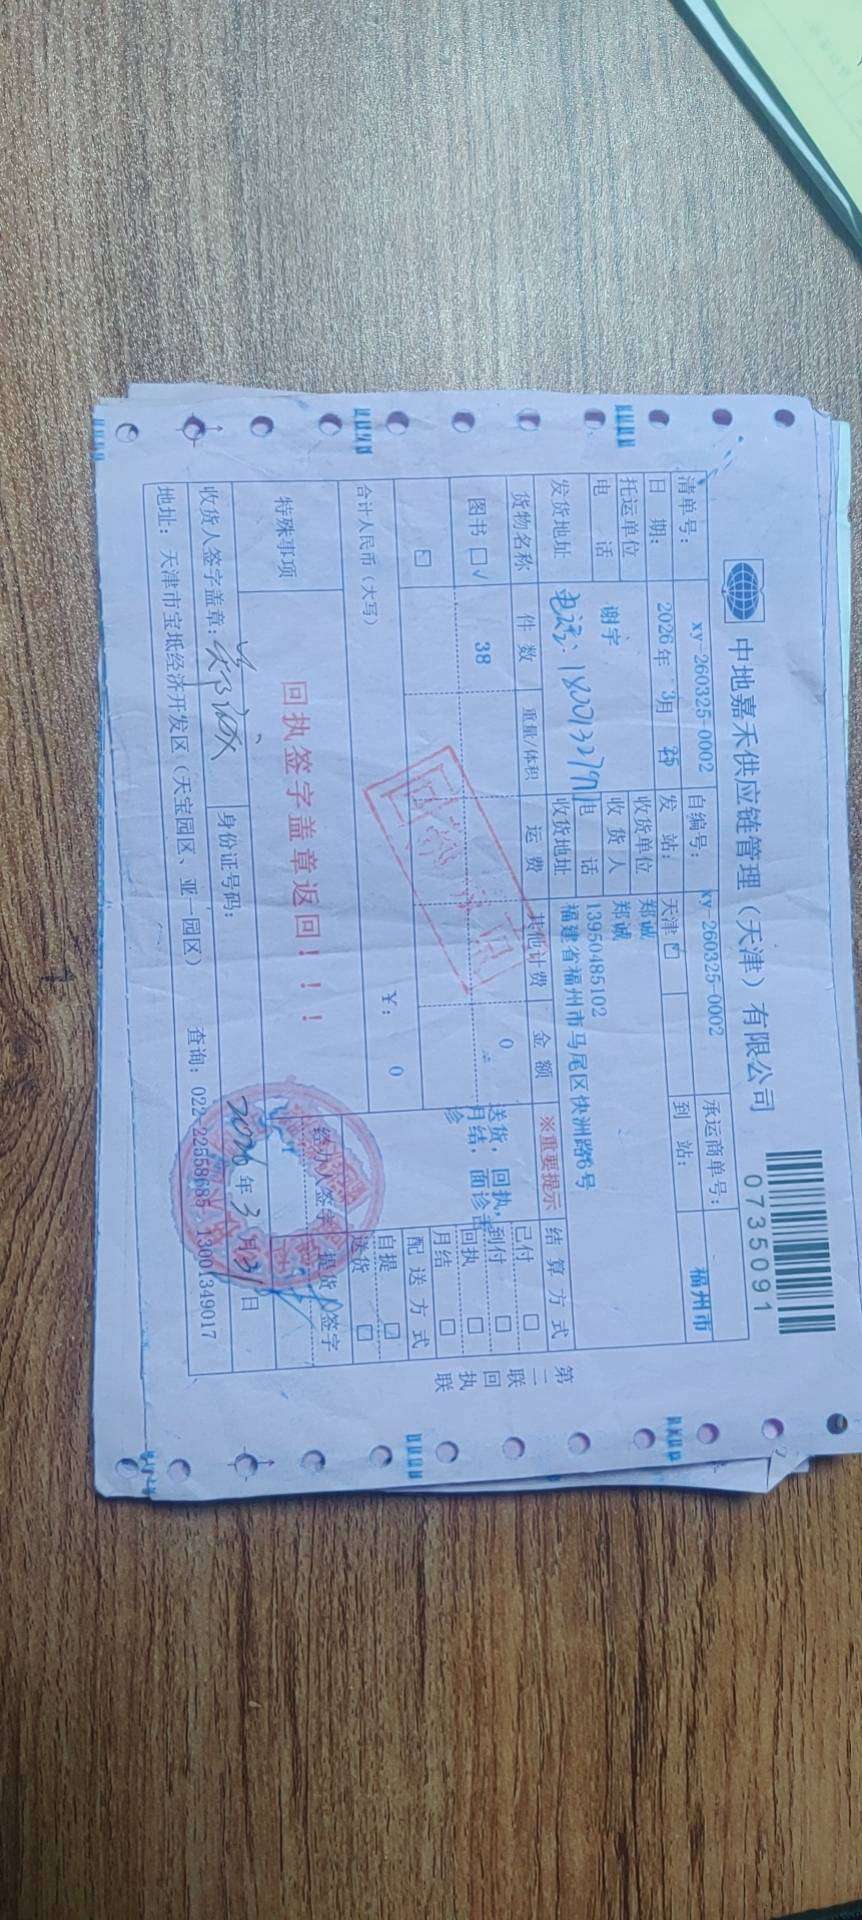 中地嘉禾供应链管理（天津）有限公司
0735091
清单号： xy-260325-0002 自编号： xy-260325-0002 承运商单号：
日 期： 2026年 3月 25 发 站： 天津 到 站： 福州市
托运单位 收货单位 郑诚
谢宇 收 货 人 郑诚
电 话 电 话 13950485102
发货地址 收货地址 福建省福州市马尾区快洲路6号
电话：
货物名称 件 数 重量/体积 运 费 其他计费 金 额 ※重要提示 结 算 方 式
图书 □√ 38 0 送货，回执，
月结，面诊
诊
已付 □
到付 □
回执 □
月结 □
合计人民币（大写） ¥： 0 配 送 方 式
自提
送货 □
特殊事项 回执签字盖章返回！！！ 经办人签字 提货人签字
收货人签字盖章： 郑诚 身份证号码： 2026年3月31日
地址：天津市宝坻经济开发区（天宝园区、亚一园区） 查询：022-22558685 13001349017
第二联 回执联